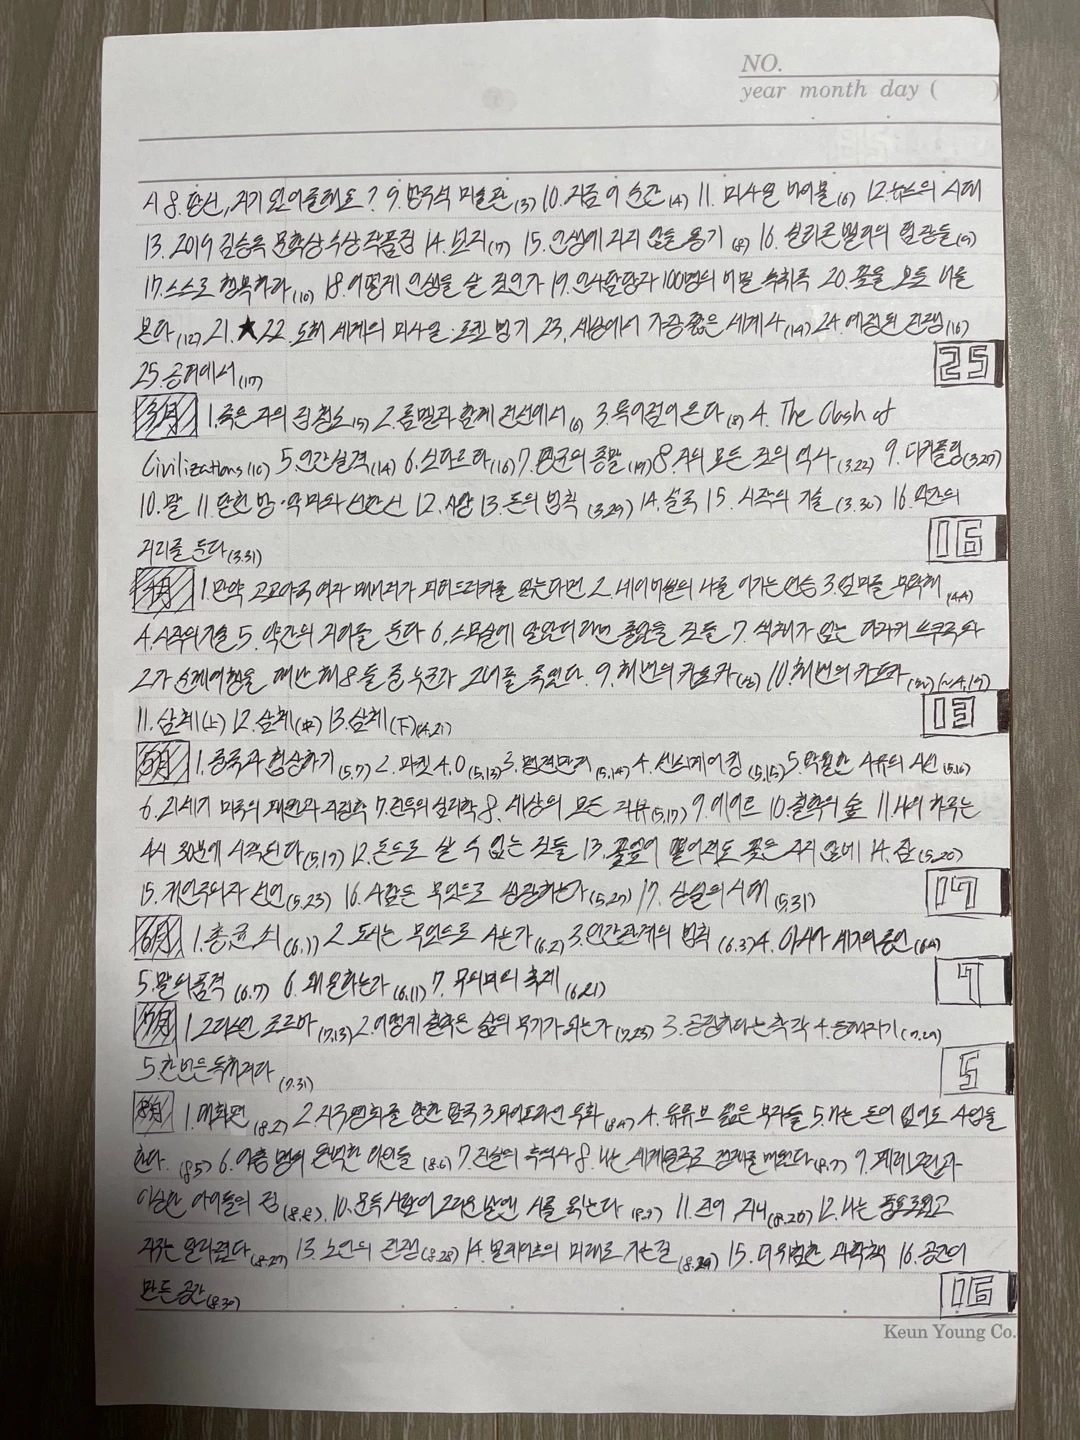 NO.
year month day ( )
사 8. 당신, 거기 있어줄래요? 9. 방구석 미술관(3) 10. 지금 이 순간(4) 11. 미사일 바이블(6) 12. 뉴스의 시대
13. 2019 김승옥 문학상 수상 작품집 14. 편지(7) 15. 인생에 지지 않을 용기(8) 16. 실리콘밸리의 팀장들(9)
17. 스스로 행복하라(10) 18. 어떻게 인생을 살 것인가 19. 인사담당자 100명의 비밀 녹취록 20. 꽃을 보듯 너를
본다(12) 21. ★ 22. 도해 세계의 미사일·로켓 병기 23. 세상에서 가장 짧은 세계사(14) 24. 예정된 전쟁(16)
25. 공터에서(17)
25
3月 1. 죽은 자의 집 청소(5) 2. 롬멜과 함께 전선에서(6) 3. 목이 걸어온다(8) 4. The Clash of
Civilizations(10) 5. 인간실격(14) 6. 싯다르타(16) 7. 평균의 종말(19) 8. 거의 모든 것의 역사(3.22) 9. 디커플링(3.27)
10. 말 11. 닫힌 방·악마와 선한 신 12. 사양 13. 돈의 법칙(3.29) 14. 설국 15. 시작의 기술(3.30) 16. 약간의
거리를 둔다(3.31)
16
4月 1. 만약 고교야구 여자 매니저가 피터드러커를 읽는다면 2. 네이비씰의 나를 이기는 연습 3. 엄마를 부탁해(4.4)
4. 시작의 기술 5. 약간의 거리를 둔다 6. 스무살에 알았더라면 좋았을 것들 7. 색채가 없는 다자키 쓰쿠루와
그가 순례여행을 떠난 해 8. 둘 중 누군가 그녀를 죽였다. 9. 해변의 카프카(上) 10. 해변의 카프카(下)(~4.19)
11. 삼체(上) 12. 삼체(中) 13. 삼체(下)(4.21)
13
5月 1. 중국과 협상하기(5.7) 2. 마켓 4.0(5.13) 3. 법정의(5.14) 4. 센스메이킹(5.15) 5. 탁월한 사유의 시선(5.16)
6. 21세기 미국의 패권과 지정학 7. 전투의 심리학 8. 세상의 모든 리뷰(5.17) 9. 에이트 10. 철학의 숲 11. 나의 하루는
4시 30분에 시작된다(5.19) 12. 돈으로 살 수 없는 것들 13. 꽃잎이 떨어져도 꽃은 지지 않네 14. 잠(5.20)
15. 개인주의자 선언(5.23) 16. 사람은 무엇으로 성장하는가(5.27) 17. 상실의 시대(5.31)
17
6月 1. 총,균,쇠(6.1) 2. 도시는 무엇으로 사는가(6.2) 3. 인간관계의 법칙(6.3) 4. 아시아 세기의 종언(6.4)
5. 말의 품격(6.7) 6. 왜 일하는가(6.11) 7. 무의미의 축제(6.21)
7
7月 1. 그리스인 조르바(7.13) 2. 어떻게 철학은 삶의 무기가 되는가(7.23) 3. 공정하다는 착각 4. 동해작기(7.29)
5. 한번은 독해져라(7.31)
5
8月 1. 대화편(8.2) 2. 지구평화를 향한 탐구 3. 파이프라인 우화(8.4) 4. 유튜브 젊은 부자들 5. 나는 돈이 없어도 사업을
한다.(8.5) 6. 아홉 명의 완벽한 타인들(8.6) 7. 진실의 흑역사 8. 나는 세계일주로 경제를 배웠다(8.7) 9. 페러그린과
이상한 아이들의 집(8.8) 10. 문득 사람이 그리운 날엔 시를 읽는다(8.9) 11. 진이 지니(8.26) 12. 나는 풍요로웠고
지구는 달라졌다(8.27) 13. 노인의 전쟁(8.28) 14. 빌게이츠의 미래로 가는길(8.29) 15. 더 위험한 과학책 16. 공간이
만든 공간(8.30)
16
Keun Young Co.